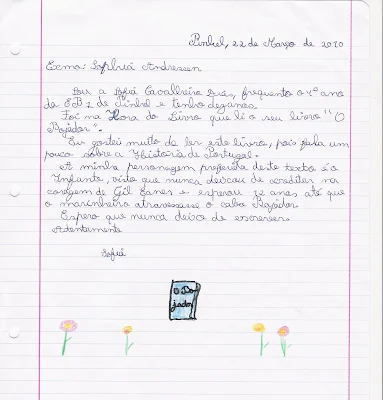 Pinhel, 22 de Março de 2010
Exma: Sophia Andresen
Sou a Sofia Cavalheiro, frequento o 4º ano
da EB2 de Pinhel e tenho dez anos.
Foi na Hora do Livro que li o seu livro "O
Bojador".
Eu gostei muito de ler este livro, pois fala um
pouco sobre a História de Portugal.
A minha personagem preferida deste texto é o
Infante, visto que nunca deixou de acreditar na
coragem de Gil Eanes e esperou 12 anos até que
o marinheiro atravessasse o cabo Bojador.
Espero que nunca deixe de escrever.
Atentamente
Sofia
O Bo
jador